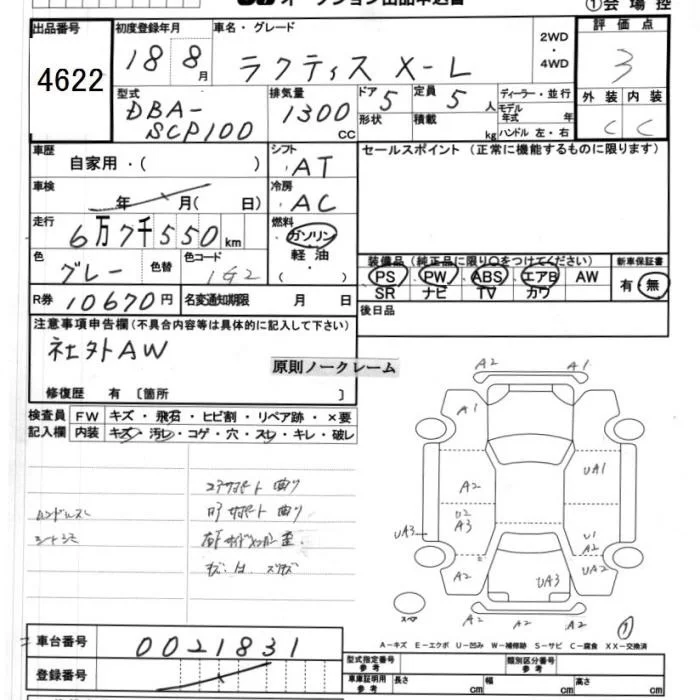 出品番号
4622
初度登録年月
18 8月
車名・グレード
ラクティス X-L
2WD
・
4WD
評価点
3
外装 内装
C C
型式
DBA-
SCP100
排気量
1300 CC
ドア 5
形状
定員 5 人
積載 kg
ディーラー・並行
モデル
年式 年
ハンドル 左・右
車歴
自家用・( )
シフト
AT
セールスポイント (正常に機能するものに限ります)
車検
年 月( 日)
冷房
AC
走行
6万7千550km
燃料
ガソリン
軽油
( ・ )
色
グレー
色替
色コード
1G2
装備品 (純正品に限り○をつけてください)
PS PW ABS エアB AW
SR ナビ TV カワ
新車保証書
有・無
R券 10670円
名変通知期限 月 日
後日品
注意事項申告欄(不具合内容等は具体的に記入して下さい)
社外AW
原則ノークレーム
修復歴 有 〔箇所 〕
検査員
記入欄
FW キズ・飛石・ヒビ割・リペア跡・×要
内装 キズ・汚レ・コゲ・穴・スレ・キレ・破レ
ハンドルスレ
シートシミ
コアサポート曲り
A2 A1
A1
A2
UA1
U2
A3
UA3
U1
A2
A2
UA2
UA3
A2 A2 A2
スペア
A-キズ E-エクボ U-凹み W-補修跡 S-サビ C-腐食 XX-交換済
車台番号
0021831
登録番号
型式指定番号
参考
類別区分番号
参考
車庫証明用
参考
長さ cm
幅 cm
高さ cm